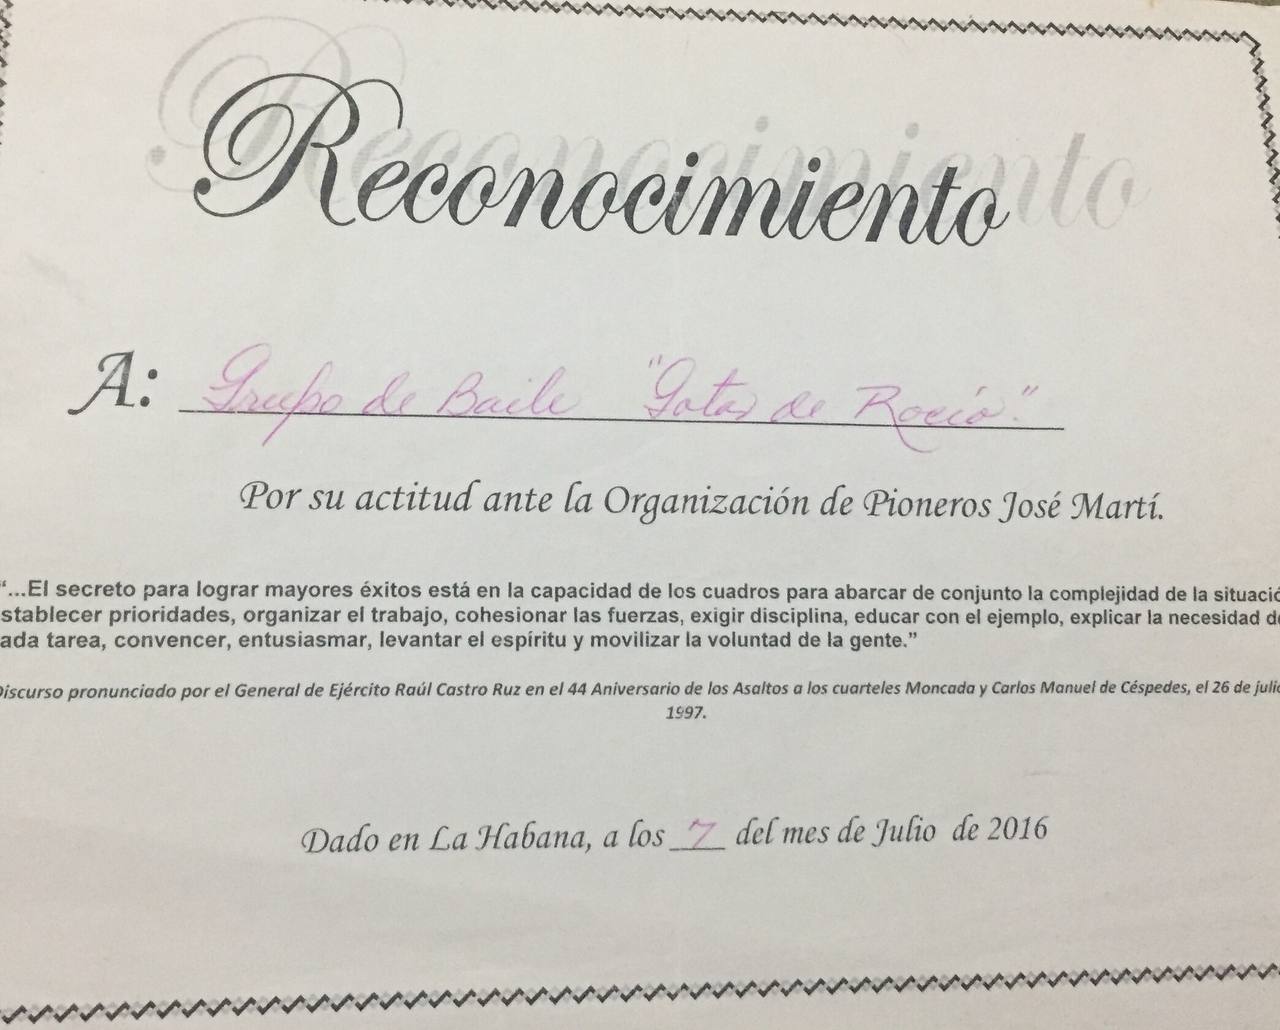 Reconocimiento
A: Grupo de Baile "Gotas de Rocío".
Por su actitud ante la Organización de Pioneros José Martí.
“...El secreto para lograr mayores éxitos está en la capacidad de los cuadros para abarcar de conjunto la complejidad de la situació
stablecer prioridades, organizar el trabajo, cohesionar las fuerzas, exigir disciplina, educar con el ejemplo, explicar la necesidad de
ada tarea, convencer, entusiasmar, levantar el espíritu y movilizar la voluntad de la gente.”
Discurso pronunciado por el General de Ejército Raúl Castro Ruz en el 44 Aniversario de los Asaltos a los cuarteles Moncada y Carlos Manuel de Céspedes, el 26 de julio
1997.
Dado en La Habana, a los 7 del mes de Julio de 2016